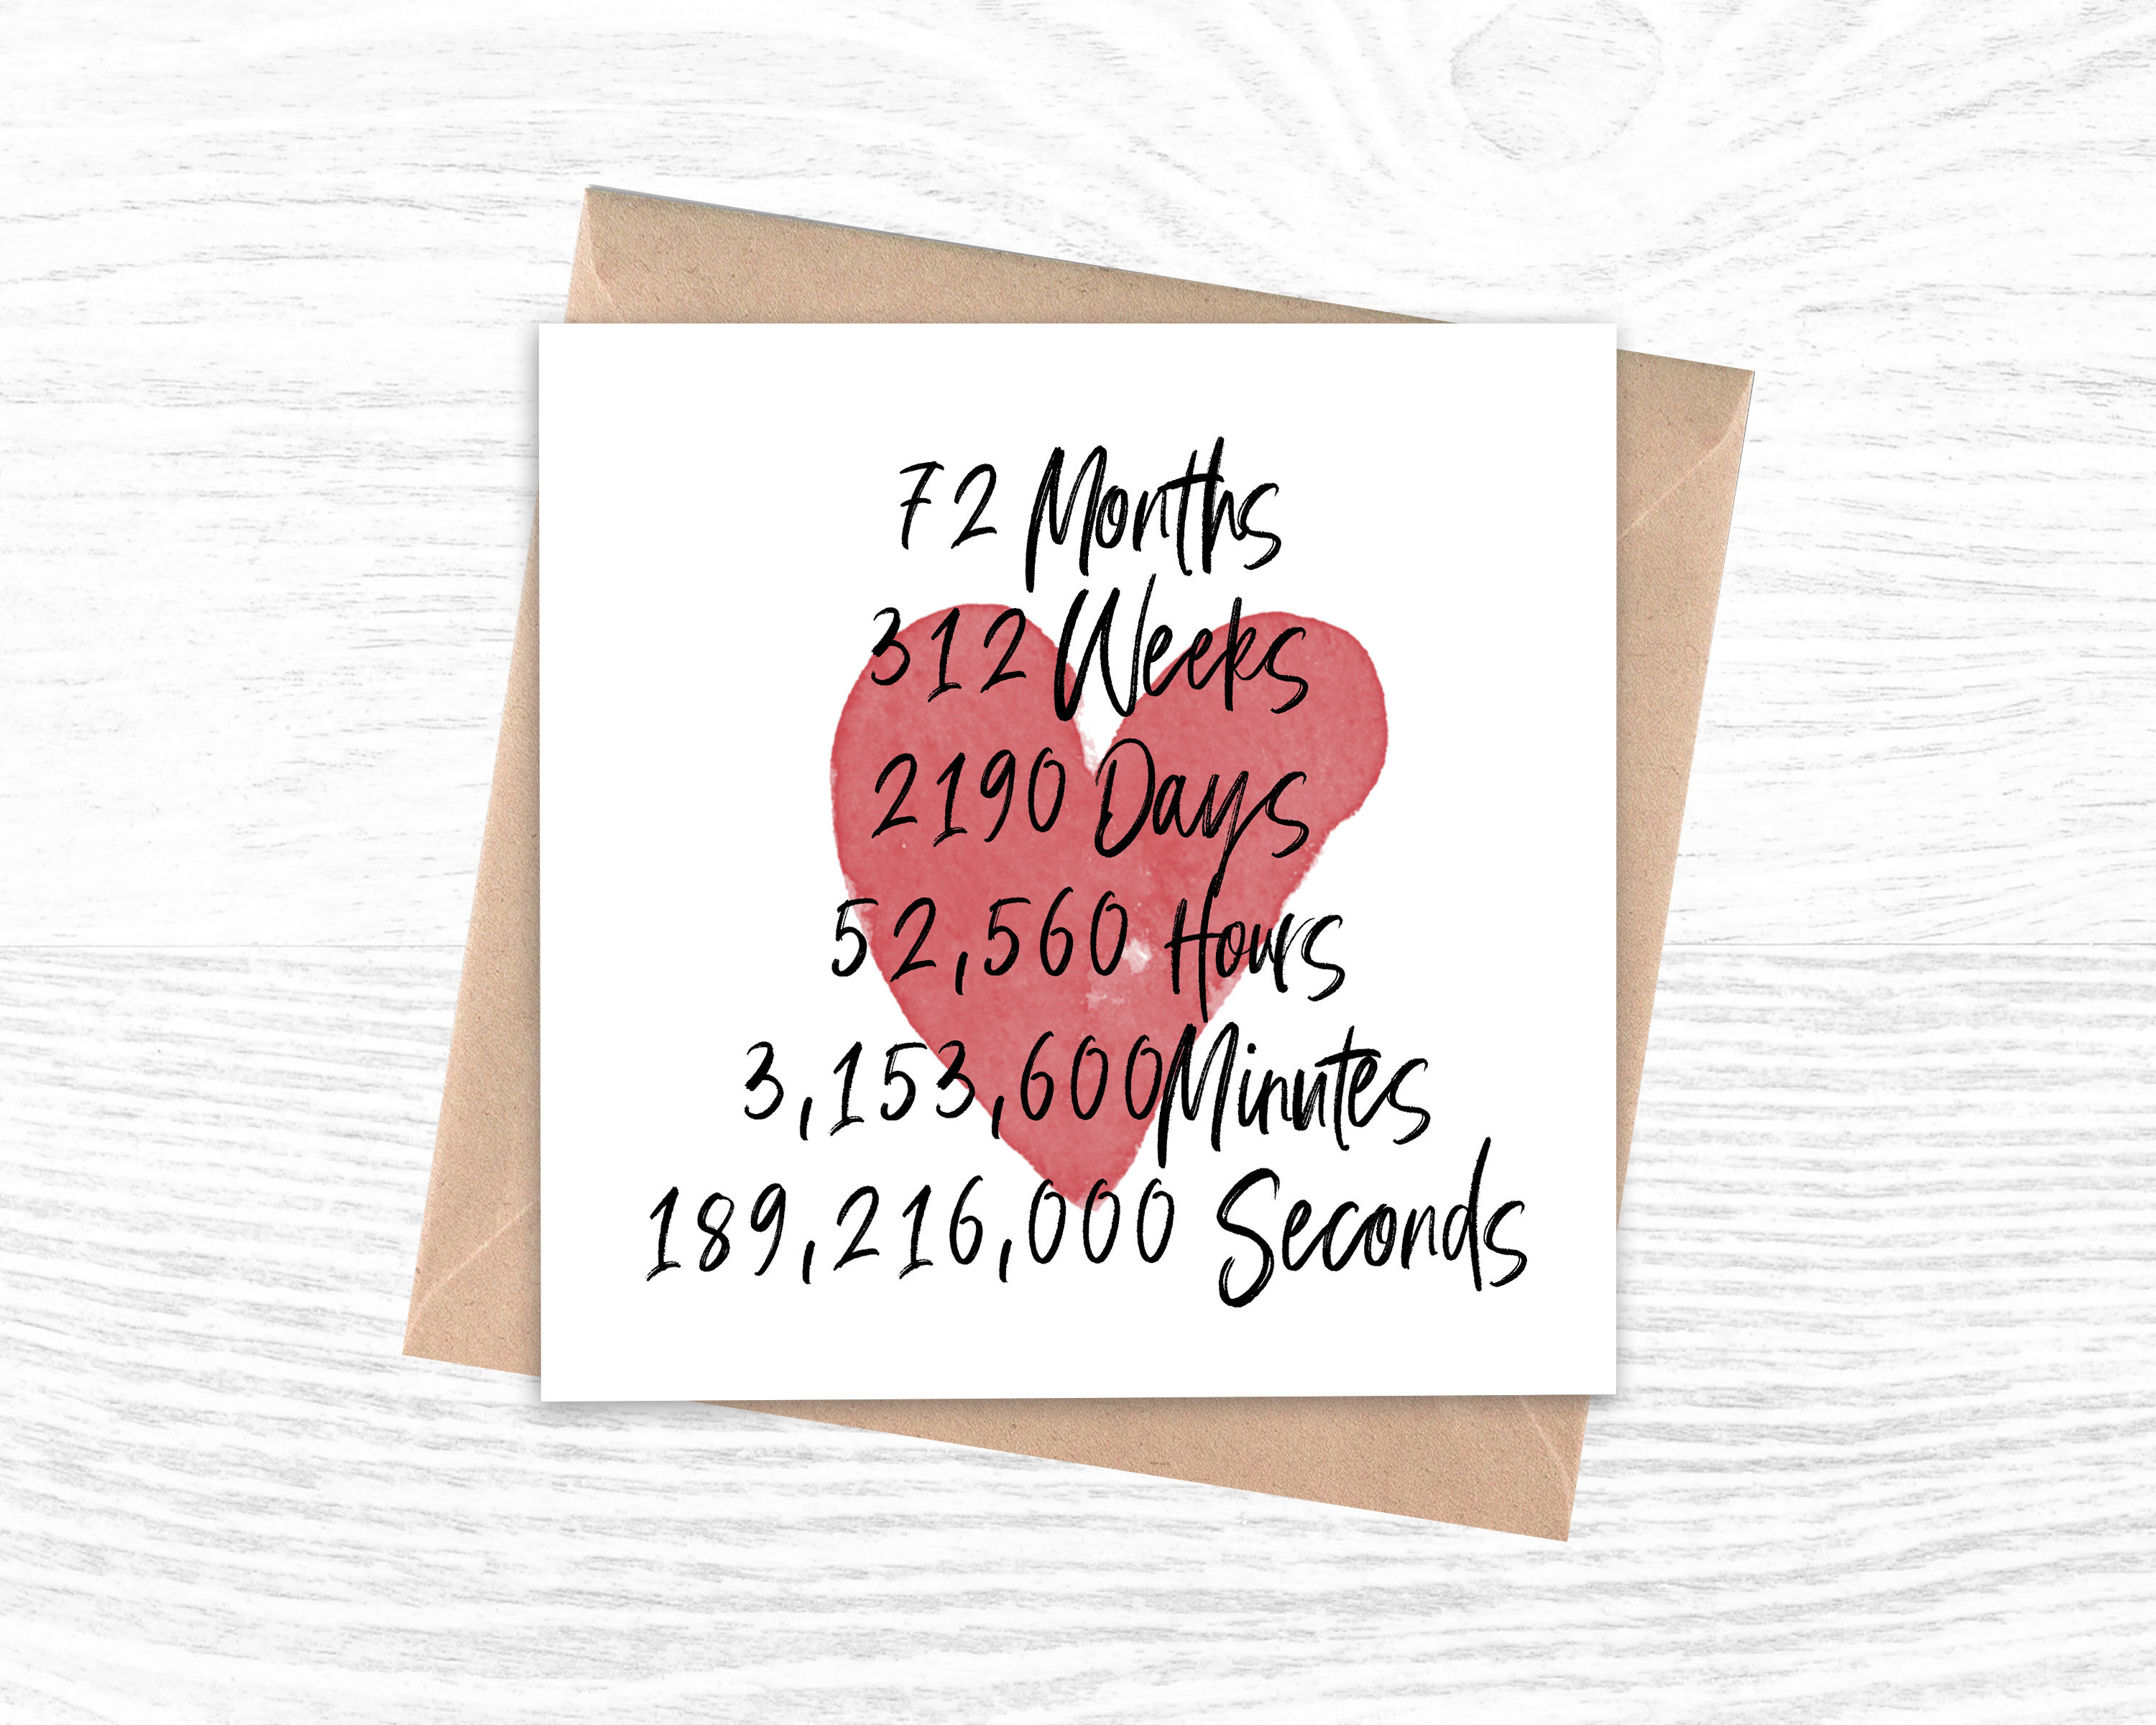 72 Months
312 Weeks
2190 Days
52,560 Hours
3,153,600Minutes
189,216,000 Seconds